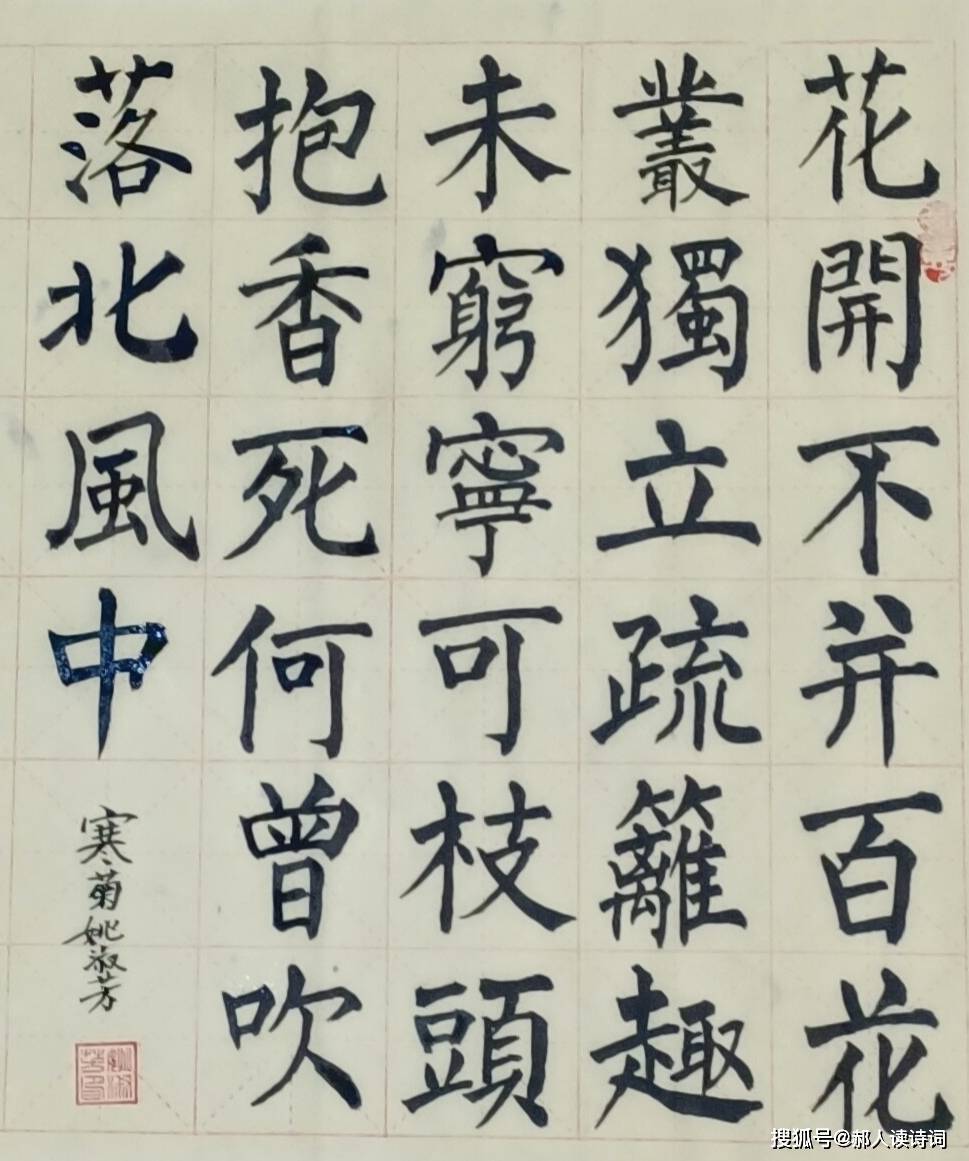 花開不并百花
叢獨立疏籬趣
未窮寧可枝頭
抱香死何曾吹
落北風中
寒菊姚淑芳
搜狐号@郝人读诗词